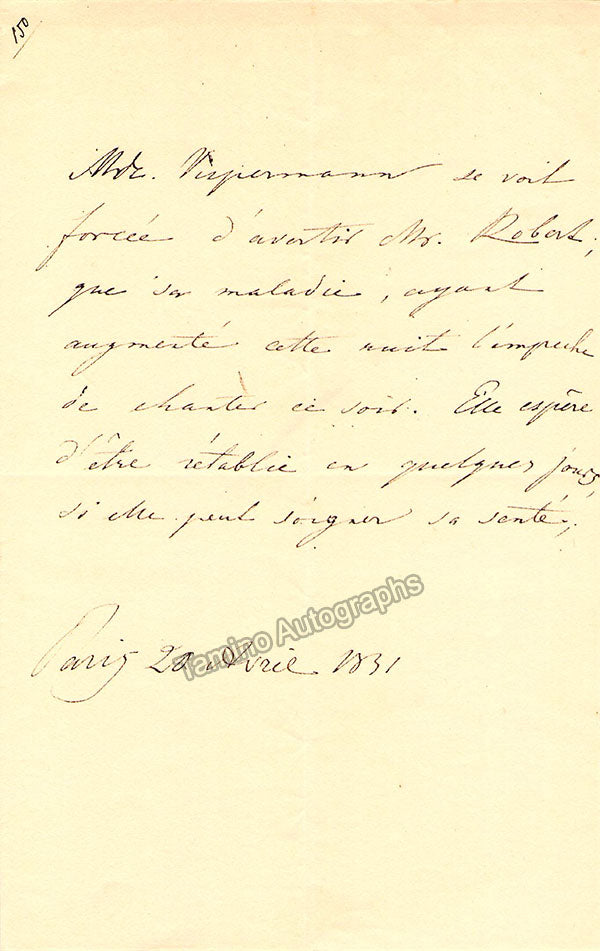 150
Mde. Vespermann se voit
forcée d'avertir Mr. Robert,
que sa maladie, ayant
augmenté cette nuit l'empeche
de chanter ce soir. Elle espère
d'être rétablie en quelques jours,
si elle peut soigner sa santé,
Tamino Autographs
Paris 20 Avril 1831